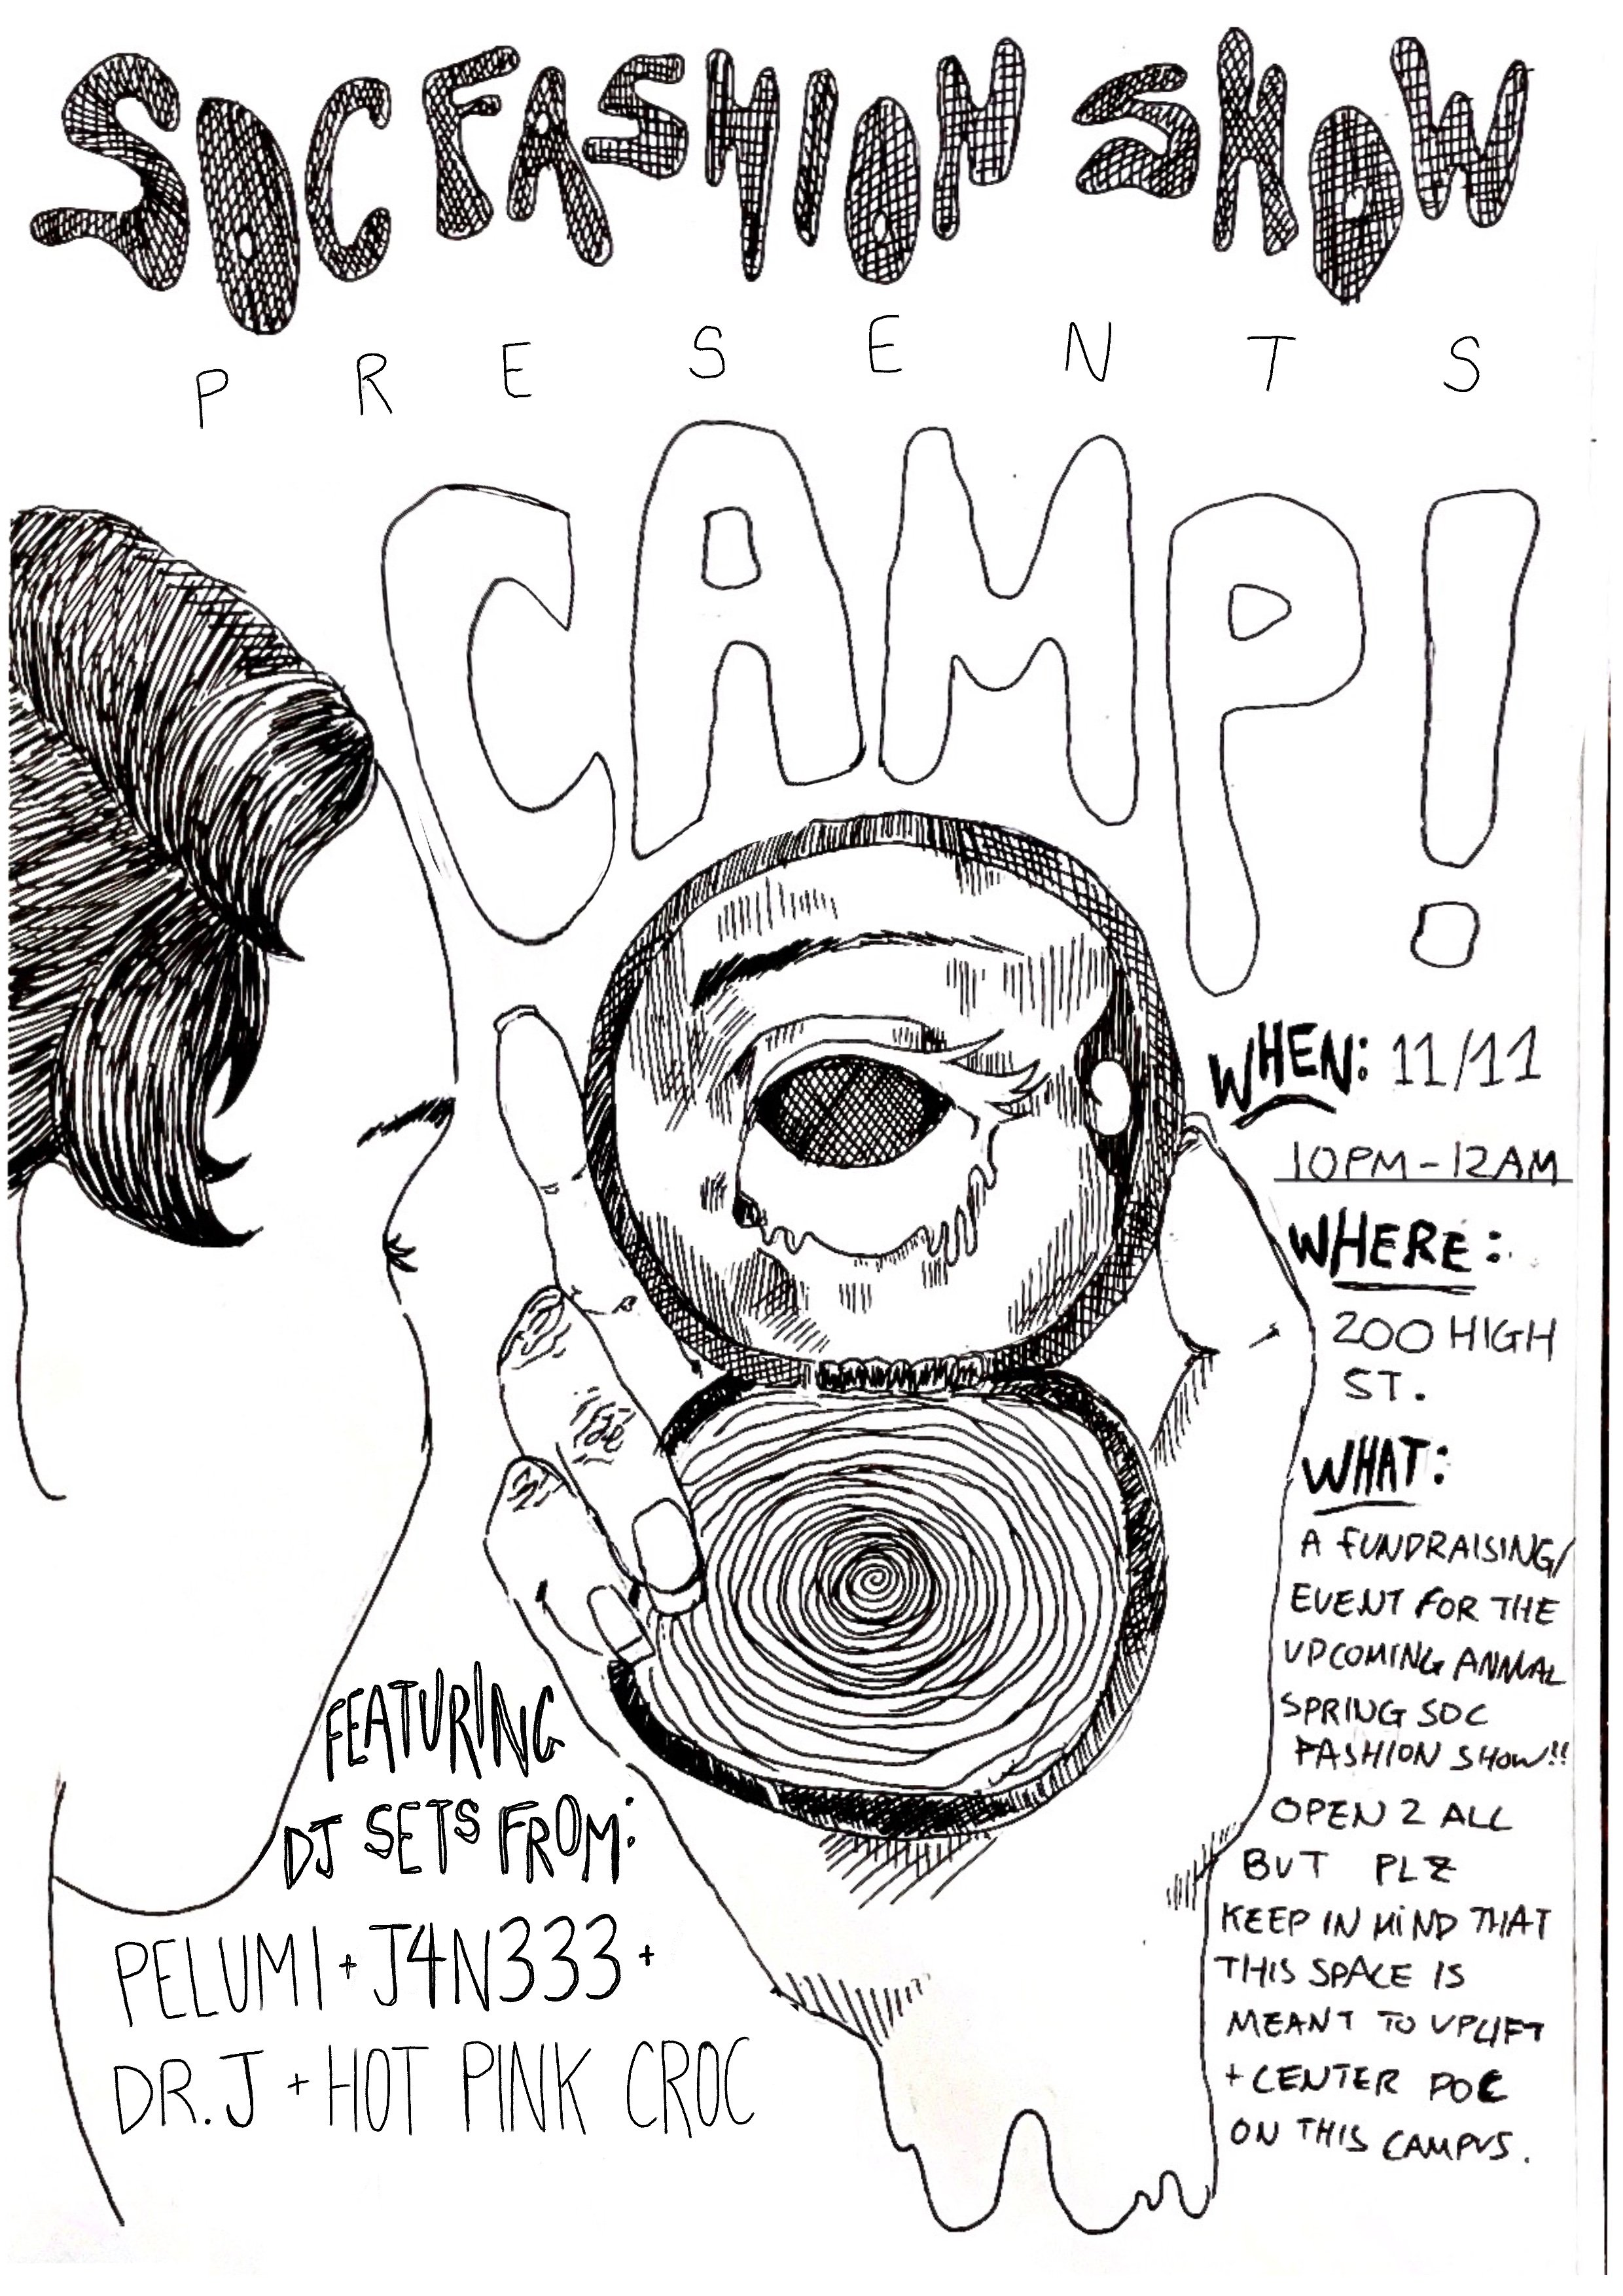 SOC FASHION SHOW
PRESENTS
CAMP!
WHEN: 11/11
10PM-12AM
WHERE:
200 HIGH
ST.
WHAT:
A FUNDRAISING/
EVENT FOR THE
UPCOMING ANNUAL
SPRING SOC
FASHION SHOW!!
OPEN 2 ALL
BUT PLZ
KEEP IN MIND THAT
THIS SPACE IS
MEANT TO UPLIFT
+ CENTER POC
ON THIS CAMPUS.
FEATURING
DJ SETS FROM:
PELUMI + J4N333 +
DR. J + HOT PINK CROC